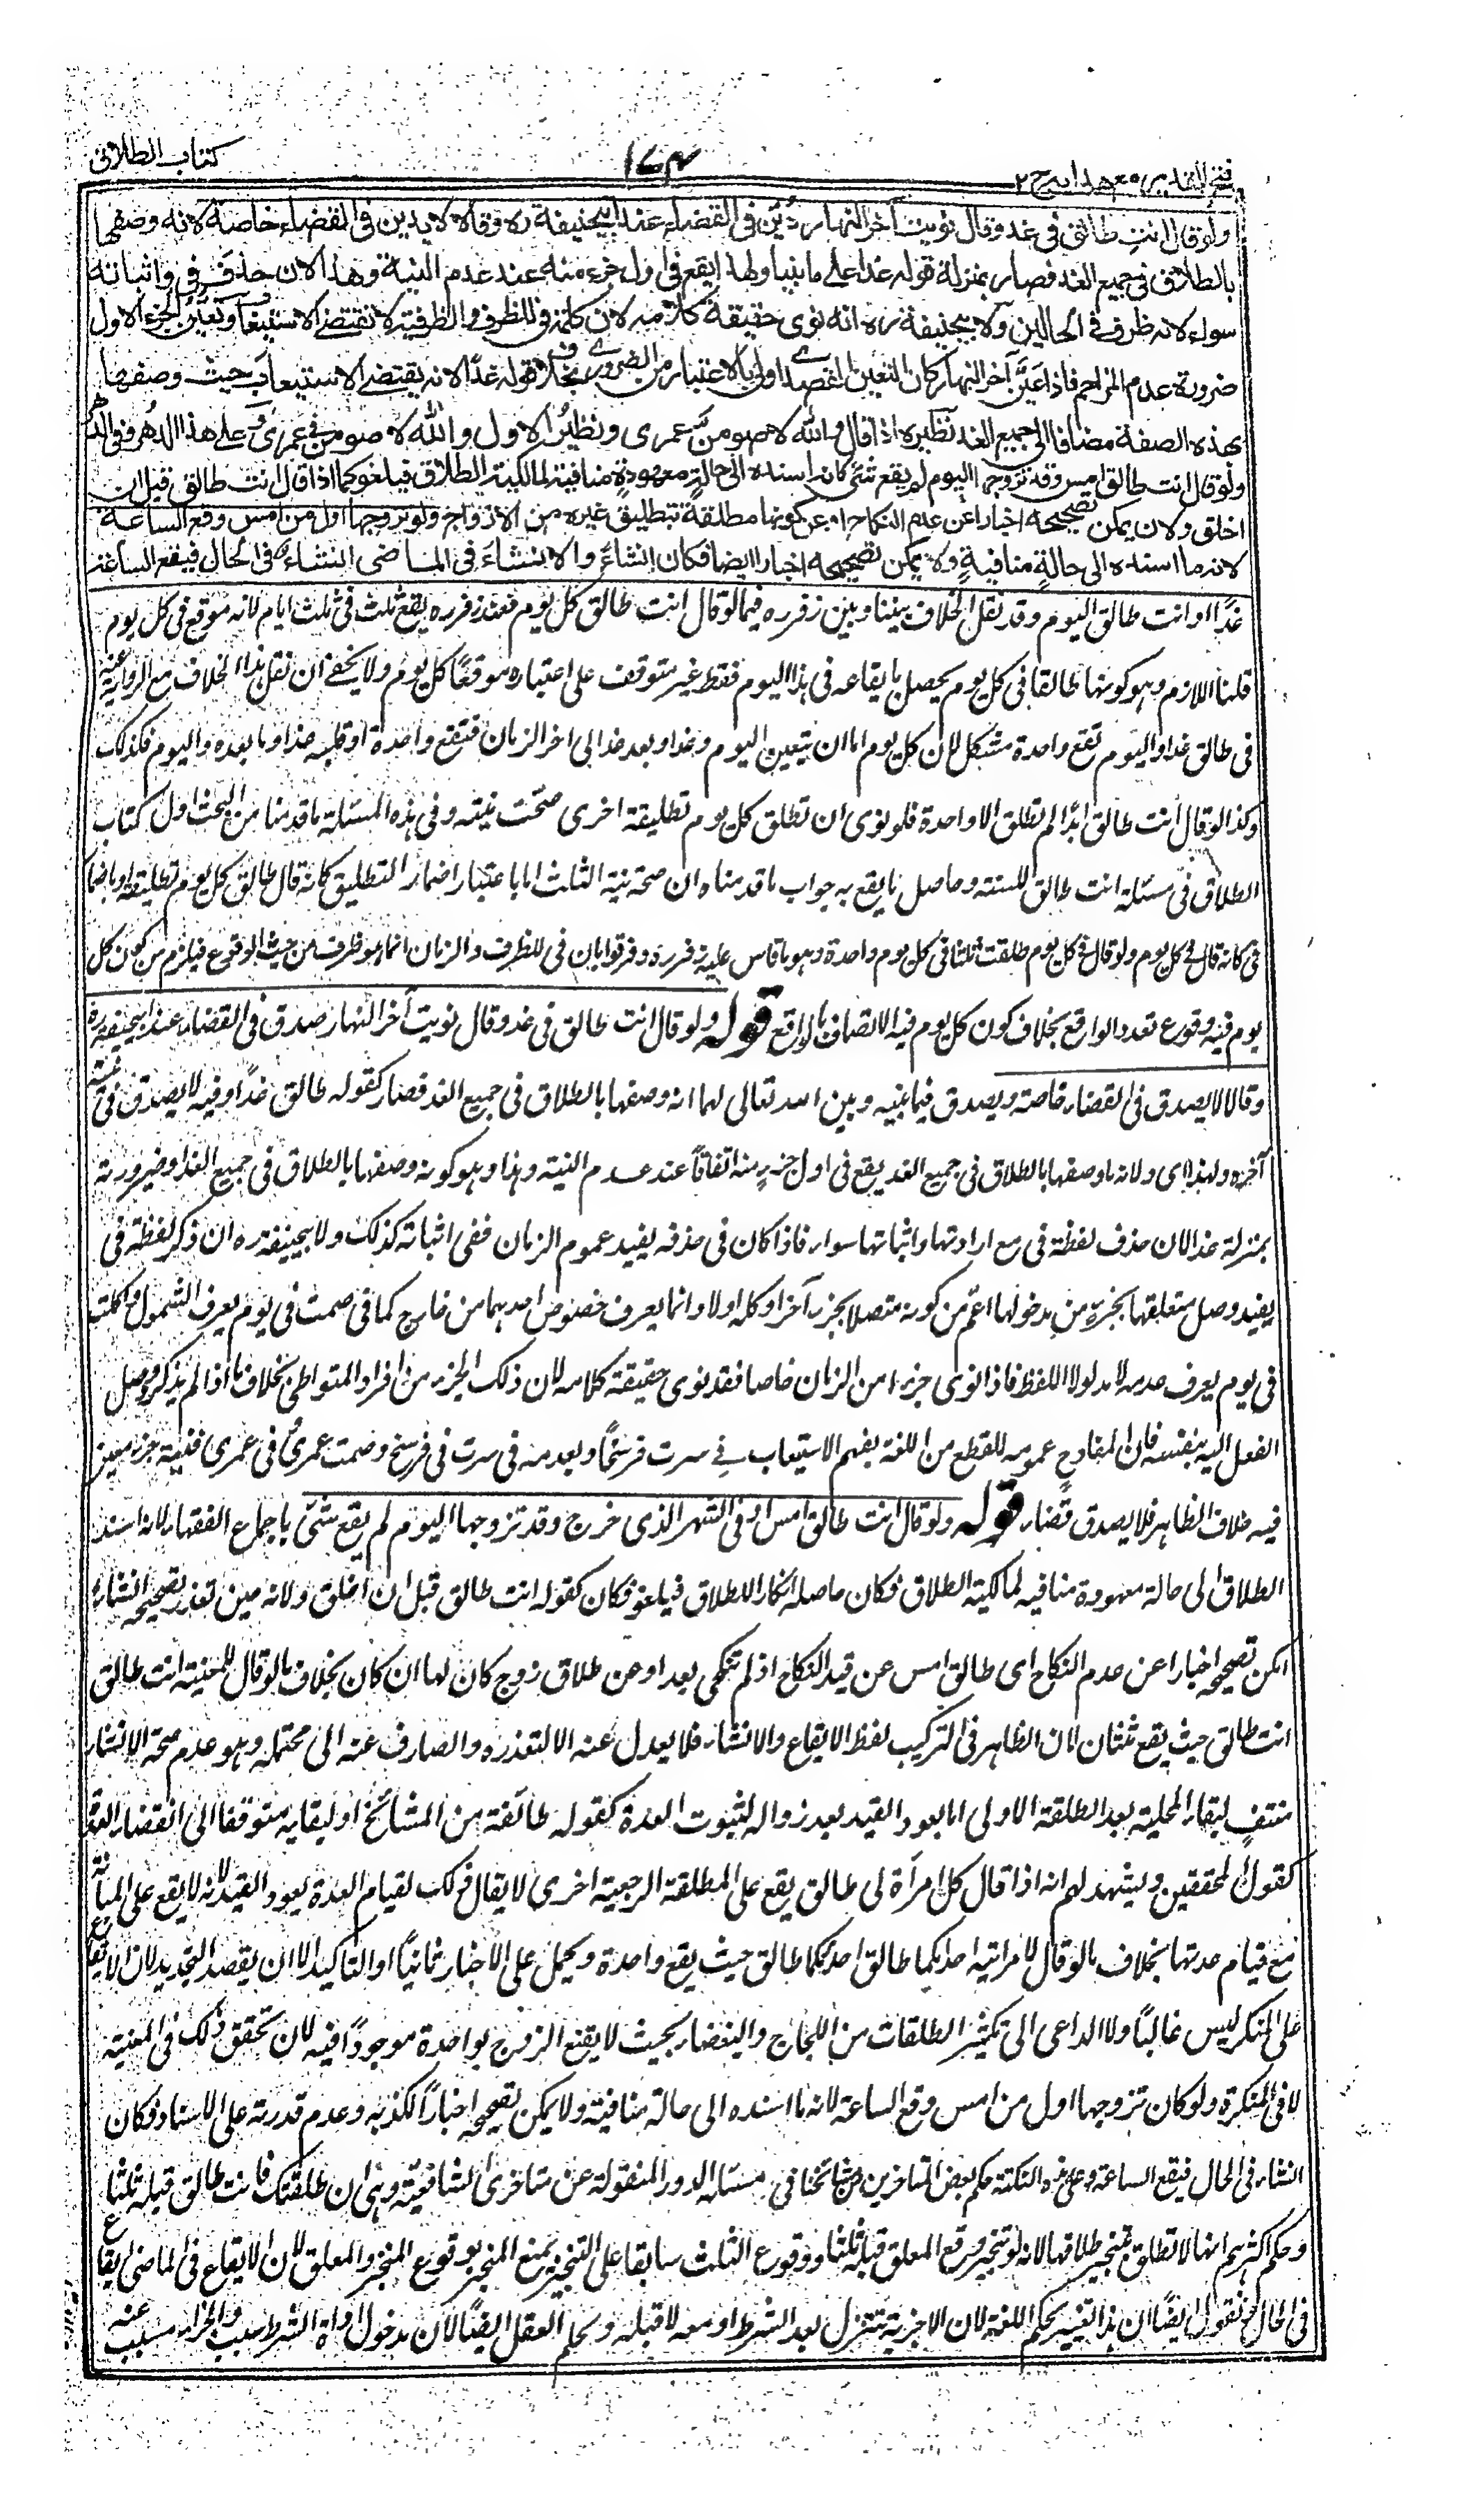 فتح القدير مع هدايه ج ٢
١٧٣
كتاب الطلاق
ولو قال انت طالق في غد وقال نويت آخر النهار دُيّن في القضاء عند ابيحنيفة ره وقالا لا يدين في القضاء خاصة لانه وصفها
بالطلاق في جميع الغد فصار بمنزلة قوله غدا على ما بينا ولهذا يقع في اول جزء منه عند عدم النية وهذا لان حذف في واثباته
سواء لانه ظرف في الحالين ولابيحنيفة ره انه نوى حقيقة كلامه لان كلمة في للظرف والظرفية لا تقتضي الاستيعاب وتعين الجزء الاول
ضرورة عدم المزاحم فاذا عَيَّن آخر النهار كان التعيين القصدي اولى بالاعتبار من الضروري بخلاف قوله غدًا لانه يقتضي الاستيعاب حيث وصفها
بهذه الصفة مضافا الى جميع الغد نظيره اذا قال والله لاصومنّ عمرى ونظيرُ الاول والله لاصومن في عمرى وعلى هذا الدهر وفي الدهر
ولو قال انت طالق امس وقد تزوجها اليوم لم يقع شئ لانه اسنده الى حالةٍ معهودةٍ منافية لمالكية الطلاق فيلغو كما اذا قال انت طالق قبل ان
اخلق ولانه يمكن تصحيحه اخبارا عن عدم النكاح او عن كونها مطلقةً بتطليق غيره من الازواج ولو تزوجها اول من امس وقع الساعة
لانه ما اسنده الى حالةٍ منافيةٍ ولا يمكن تصحيحه اخبارا ايضا فكان انشاءً والانشاء في الماضى انشاء في الحال فيقع الساعة
غدًا او انت طالق اليوم وقد نقل الخلاف بيننا وبين زفر ره فيما لو قال انت طالق كل يوم فعند زفر ره يقع ثلث في ثلث ايام لانه موقع في كل يوم
قلنا اللازم وهو كونها طالقا في كل يوم يحصل بايقاعه في هذا اليوم فقط غير متوقف على اعتباره موقعًا كل يوم ولا يخفى ان نقل هذا الخلاف مع الرواية عنه
في طالق غدا واليوم تقع واحدة مشكل لان كل يوم اما ان يتعين اليوم وغدا وبعد غد الى آخر الزمان فتقع واحدة او قلبه غدا وما بعده واليوم فكذلك
وكذا لو قال أنت طالق ابدًا لم تطلق الا واحدة فلو نوى ان تطلق كل يوم تطليقة اخرى صحّت نيته وفي هذه المسئلة ما قدمنا من البحث اول كتاب
الطلاق في مسئلة انت طالق للسنة وحاصل ما يقع به جواب ما قدمناه ان صحة نية الثلث اما باعتبار اضمار التطليق كانه قال طالق كل يوم تطليقة او باضمار
في كانه قال في كل يوم ولو قال في كل يوم طلقت ثلثا في كل يوم واحدة وهو ما قاس عليه زفر ره وفرقوا بان في للظرف والزمان انما هو ظرف من حيث الوقوع فيلزم من كون كل
يوم فيه وقوع تعدد الواقع بخلاف كون كل يوم فيه الاتصاف بالواقع قوله ولو قال انت طالق في غد وقال نويت آخر النهار صدق في القضاء عند ابيحنيفة ره
وقالا لا يصدق في القضاء خاصة ويصدق فيما بينه وبين الله تعالى لهما انه وصفها بالطلاق في جميع الغد فصار كقوله طالق غدًا وفيه لا يصدق في نيته
آخره ولهذا اى ولانه ما وصفها بالطلاق في جميع الغد يقع في اول جزءٍ منه اتفاقًا عند عدم النية وهذا وهو كونه وصفها بالطلاق في جميع الغد وصيرورته
بمنزلة غدا لان حذف لفظة في مع ارادتها واثباتها سواء فاذا كان في حذفه يفيد عموم الزمان ففى اثباته كذلك ولابيحنيفة ره ان ذكر لفظة في
يفيد وصل متعلقها بجزءٍ من مدخولها اعم من كونه متصلا بجزء آخر او كله او لا وانما يعرف خصوص احدهما من خارج كما في صمت في يوم يعرف الشمول واكلت
في يوم يعرف عدمه لا مدلولا للفظ فاذا نوى جزءا من الزمان خاصا فقد نوى حقيقة كلامه لان ذلك الجزء من افراد المتواطئ بخلاف ما اذا لم يذكر ووصل
الفعل اليه بنفسه فان المفاد ح عمومه للقطع من اللغة بفهم الاستيعاب في سرت فرسخًا وبعدمه في سرت في فرسخ وصمت عمرى وفي عمرى فنية جزء معين
فيه خلاف الظاهر فلا يصدق قضاء قوله ولو قال انت طالق امس او في الشهر الذى خرج وقد تزوجها اليوم لم يقع شئ باجماع الفقهاء لانه اسند
الطلاق الى حالة معهودة منافية لمالكية الطلاق فكان حاصله انكارا للطلاق فيلغو فكان كقوله انت طالق قبل ان اخلق ولانه حين تعذر تصحيحه انشاء
امكن تصحيحه اخبارا عن عدم النكاح اى طالق امس عن قيد النكاح اذ لم تنكحى بعد او عن طلاق زوج كان لها ان كان بخلاف ما لو قال للمعينة انت طالق
انت طالق حيث يقع ثنتان لان الظاهر في التركيب لفظ الايقاع والانشاء فلا يعدل عنه الا لتعذره والصارف عنه الى محتمله وهو عدم صحة الانشاء
منتفٍ لبقاء المحلية بعد الطلقة الاولى اما بعود القيد بعد زواله لثبوت العدة كقوله طائفة من المشائخ او لبقائه متوقفا الى انقضاء العدة
كقول المحققين ويشهد لهم انه اذا قال كل امرأة لى طالق يقع على المطلقة الرجعية اخرى لا يقال ذلك لقيام العدة يعود القيد لانه لا يقع على المبانة
مع قيام عدتها بخلاف ما لو قال لامراتيه احدكما طالق احدكما طالق حيث يقع واحدة ويحمل على الاخبار ثانيًا او التاكيد الا ان يقصد التجديد لان الايقاع
على المنكر ليس غالبًا ولا الداعى الى تكثير الطلقات من اللجاج والبغضاء بحيث لا يقنع الزوج بواحدة موجودًا فيه لان تحقق ذلك في المعينة
لا في المنكرة ولو كان تزوجها اول من امس وقع الساعة لانه ما اسنده الى حالة منافية ولا يمكن تصحيحه اخبارًا لكذبه وعدم قدرته على الاسناد فكان
انشاء في الحال فيقع الساعة وعلى هذه النكتة حكم بعض المتاخرين من مشائخنا في مسئلة الدور المنقولة عن متاخرى الشافعية وهى ان طلقتك فانت طالق قبله ثلثا
وحكم اكثرهم انها لا تطلق بتنجيز طلاقها لانه لو تنجز وقع المعلق قبله ثلثا ووقوع الثلث سابقا على التنجيز يمنع المنجز بوقوع المنجز والمعلق لان الايقاع في الماضى ايقاع
في الحال ح نقول ايضًا ان هذا تغيير لحكم اللغة لان الاجزية تتنزل بعد الشرط او معه لا قبله وحكم العقل ايضًا لان مدخول اداة الشرط سبب والجزاء مسبب عنه